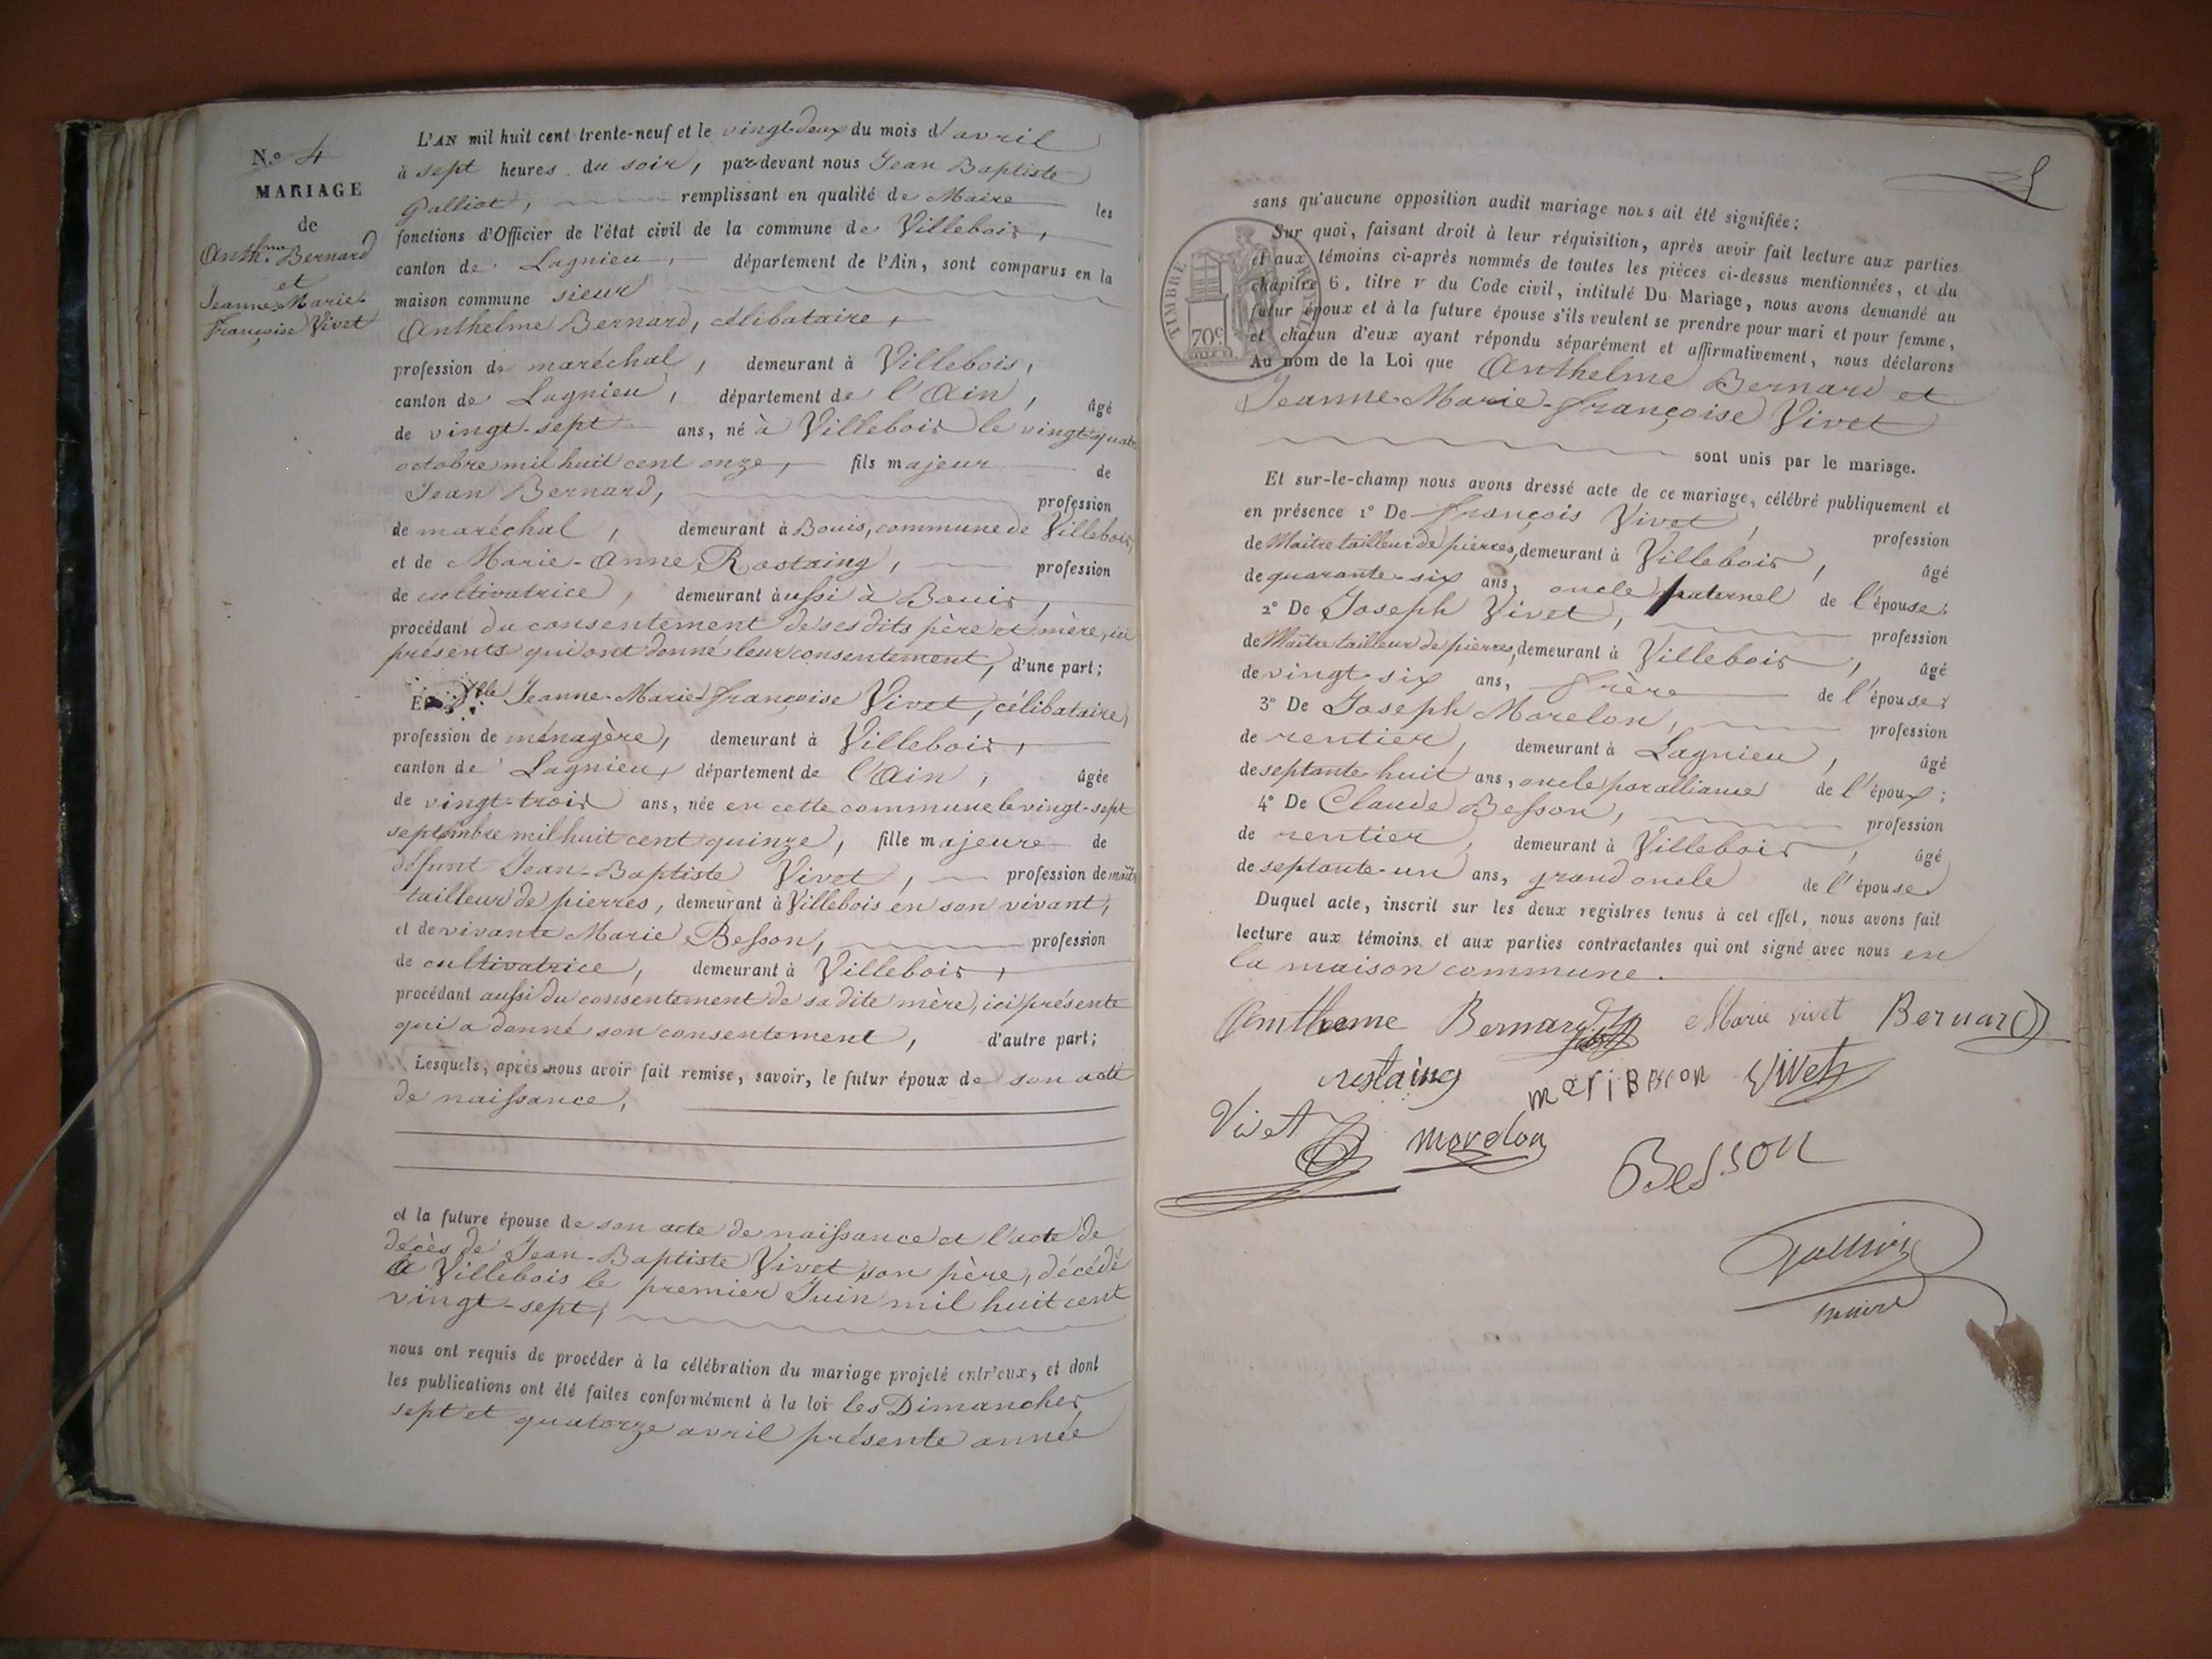 N.o 4
MARIAGE
de
Anth.me Bernard
et
Jeanne-Marie-
françoise Vivet
L'AN mil huit cent trente-neuf et le vingt-deux du mois d'avril
à sept heures du soir, par-devant nous Jean Baptiste
Galliot, remplissant en qualité de Maire les
fonctions d'Officier de l'état civil de la commune de Villebois,
canton de Lagnieu, département de l'Ain, sont comparus en la
maison commune sieur
Anthelme Bernard, célibataire,
profession de maréchal, demeurant à Villebois,
canton de Lagnieu, département de l'Ain, âgé
de vingt-sept ans, né à Villebois le vingt-quatre
octobre mil huit cent onze, fils majeur de
Jean Bernard, profession
de maréchal, demeurant à Bouis, commune de Villebois,
et de Marie-Anne Rostaing, profession
de cultivatrice, demeurant aussi à Bouis,
procédant du consentement de ses dits père et mère, ici
présents qui ont donné leur consentement, d'une part;
Et Dlle Jeanne-Marie-françoise Vivet, célibataire,
profession de ménagère, demeurant à Villebois,
canton de Lagnieu, département de l'Ain, âgée
de vingt-trois ans, née en cette commune le vingt-sept
septembre mil huit cent quinze, fille majeure de
défunt Jean-Baptiste Vivet, profession de maître
tailleur de pierres, demeurant à Villebois en son vivant,
et de vivante Marie Besson, profession
de cultivatrice, demeurant à Villebois,
procédant aussi du consentement de sa dite mère, ici présente
qui a donné son consentement, d'autre part;
Lesquels, après nous avoir fait remise, savoir, le futur époux de son acte
de naissance,
et la future épouse de son acte de naissance et l'acte de
décès de Jean-Baptiste Vivet son père, décédé
à Villebois le premier Juin mil huit cent
vingt-sept,
nous ont requis de procéder à la célébration du mariage projeté entr'eux, et dont
les publications ont été faites conformément à la loi les Dimanches
sept et quatorze avril présente année
sans qu'aucune opposition audit mariage nous ait été signifiée;
Sur quoi, faisant droit à leur réquisition, après avoir fait lecture aux parties
et aux témoins ci-après nommés de toutes les pièces ci-dessus mentionnées, et du
chapitre 6, titre v du Code civil, intitulé Du Mariage, nous avons demandé au
futur époux et à la future épouse s'ils veulent se prendre pour mari et pour femme,
et chacun d'eux ayant répondu séparément et affirmativement, nous déclarons
Au nom de la Loi que Anthelme Bernard et
Jeanne-Marie-françoise Vivet
sont unis par le mariage.
TIMBRE ROYAL
70c
Et sur-le-champ nous avons dressé acte de ce mariage, célébré publiquement et
en présence 1o De françois Vivet, profession
de Maître tailleur de pierres, demeurant à Villebois, âgé
de quarante-six ans, oncle paternel de l'épouse;
2o De Joseph Vivet, profession
de Maître tailleur de pierres, demeurant à Villebois, âgé
de vingt-six ans, frère de l'épouse;
3o De Joseph Morelon, profession
de rentier, demeurant à Lagnieu, âgé
de septante-huit ans, oncle par alliance de l'époux;
4o De Claude Besson, profession
de rentier, demeurant à Villebois, âgé
de septante-un ans, grand oncle de l'épouse
Duquel acte, inscrit sur les deux registres tenus à cet effet, nous avons fait
lecture aux témoins et aux parties contractantes qui ont signé avec nous en
la maison commune.
Amtheme Bernard Marie vivet Bernard
restaing mari Besson Vivet
Vivet morelon
Besson
Galliot
maire